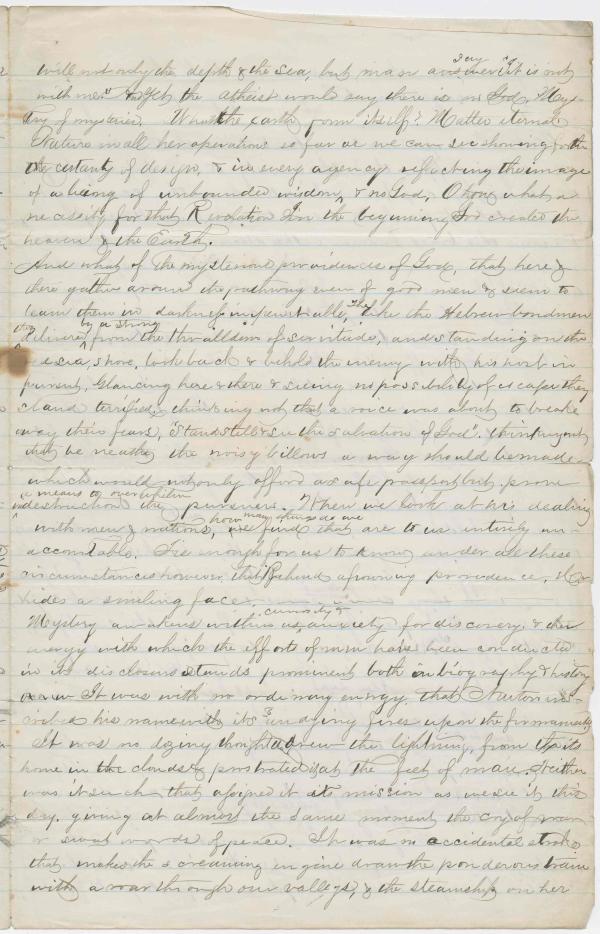 say
will not only the depth & the sea, but man answer it is not
with me." And yet the atheist would say there is no God. Mys-
try of mysteries. What the earth form itself? Matter eternal
Nature in all her operations as far as we can see showing forth
the certanty of design, & in every agency reflecting the image
of a being of unbounded wisdom, & no God, O how what a
necessity for that Revolation In the beginning God created the
heaven & the Earth.
And what of the mysterious providences of God, that here &
there gather around the pathway even of good men & seem to
leave them in darkness impenetrable, The like the Hebrew bondmen
delivered by a strong from the thralldom of servitude, and standing on the
red sea, shore, look back & behold the enemy with his host in
pursuit, Glancing here & there & seeing no possibility of escape they
stand terrified, thinking not that a voice was about to breake
away their fears, "Stand still & see the salvation of God". thinking not
that beneath the noisy billows a way should be made
which would not only afford a safe passport but prove
a means of overwhelm
destruction the pursuers. When we look at his dealing
with men & nations, how many things do we find that are to us entirely un-
accountable. Tis enough for us to know under all these
circumstances however, that Behind a frowning providence, He
hides a smiling face
Mystery awakens within us, curiosity & anxiety for discovery & the
energy with which the efforts of men have been conducted
in its disclosure stands prominent both in biography & history
It was with no ordinary energy that Newton ins-
cribed his name with its undying fires upon the firmament.
It was no dozing thought drew the lightning, from its
home in the clouds & prostrated it at the feet of man. Neither
was it such that asigned it its mission as we see it this
day. giving at almost the same moment the cry of war
or sweet words of peace. It was no accidental stroke
that makes the screaming engine draw the ponderous train
with a roar through our valleys, & the steamship on her